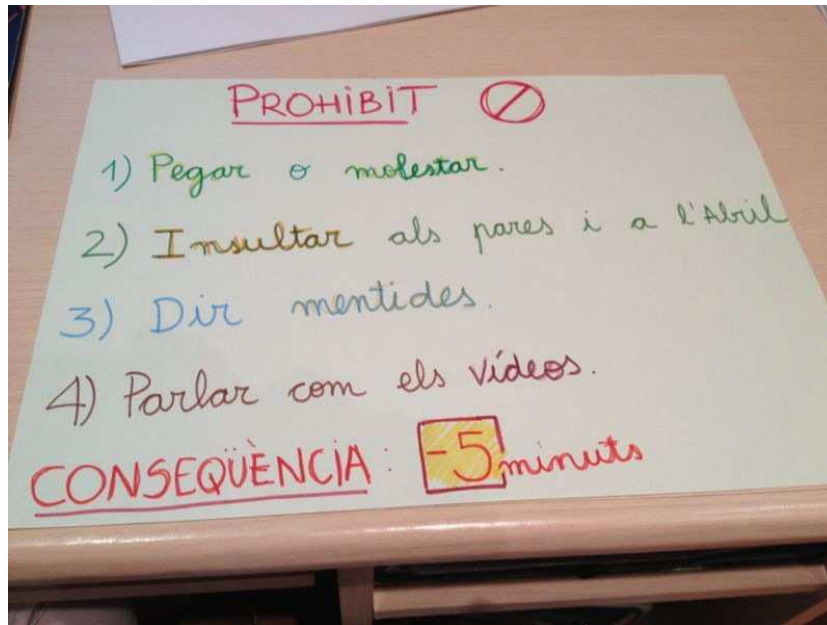 PROHIBIT
1) Pegar o molestar.
2) Insultar als pares i a l'Abril
3) Dir mentides.
4) Parlar com els vídeos.
CONSEQÜÈNCIA: -5 minuts